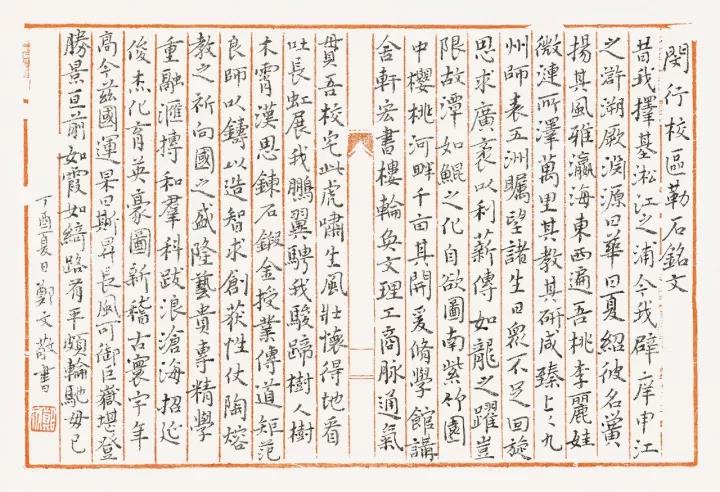 閔行校區勒石銘文
昔我擇基淞江之浦今我辟庠申江
之滸溯厥淵源曰華曰夏紹彼名黌
揚其風雅瀛海東西遍吾桃李麗娃
微漣所澤萬里其教其研咸臻上上九
州師表五洲矚望諸生日衆不足回旋
思求廣袤以利薪傳如龍之躍豈
限故潭如鯤之化自欲圖南紫竹園
中櫻桃河畔千亩其開爰脩學館講
舍軒宏書樓輪奐文理工商脉通氣
貫吾校宅此虎嘯生風壯懷得地看
吐長虹展我鵬翼騁我駿蹄樹人樹
木霄漢思鍊石鍛金授業傳道矩范
良師以鑄以造智求創获性仗陶熔
教之祈向國之盛隆藝贵專精學
重融滙摶和羣科跋浪滄海招延
俊杰化育英豪圖新稽古寰宇年
高今兹國運杲日斯昇長風可御巨嶽堪登
勝景亘前如霞如綺路有平頗輪馳毋已
丁酉夏日鄭文敬書